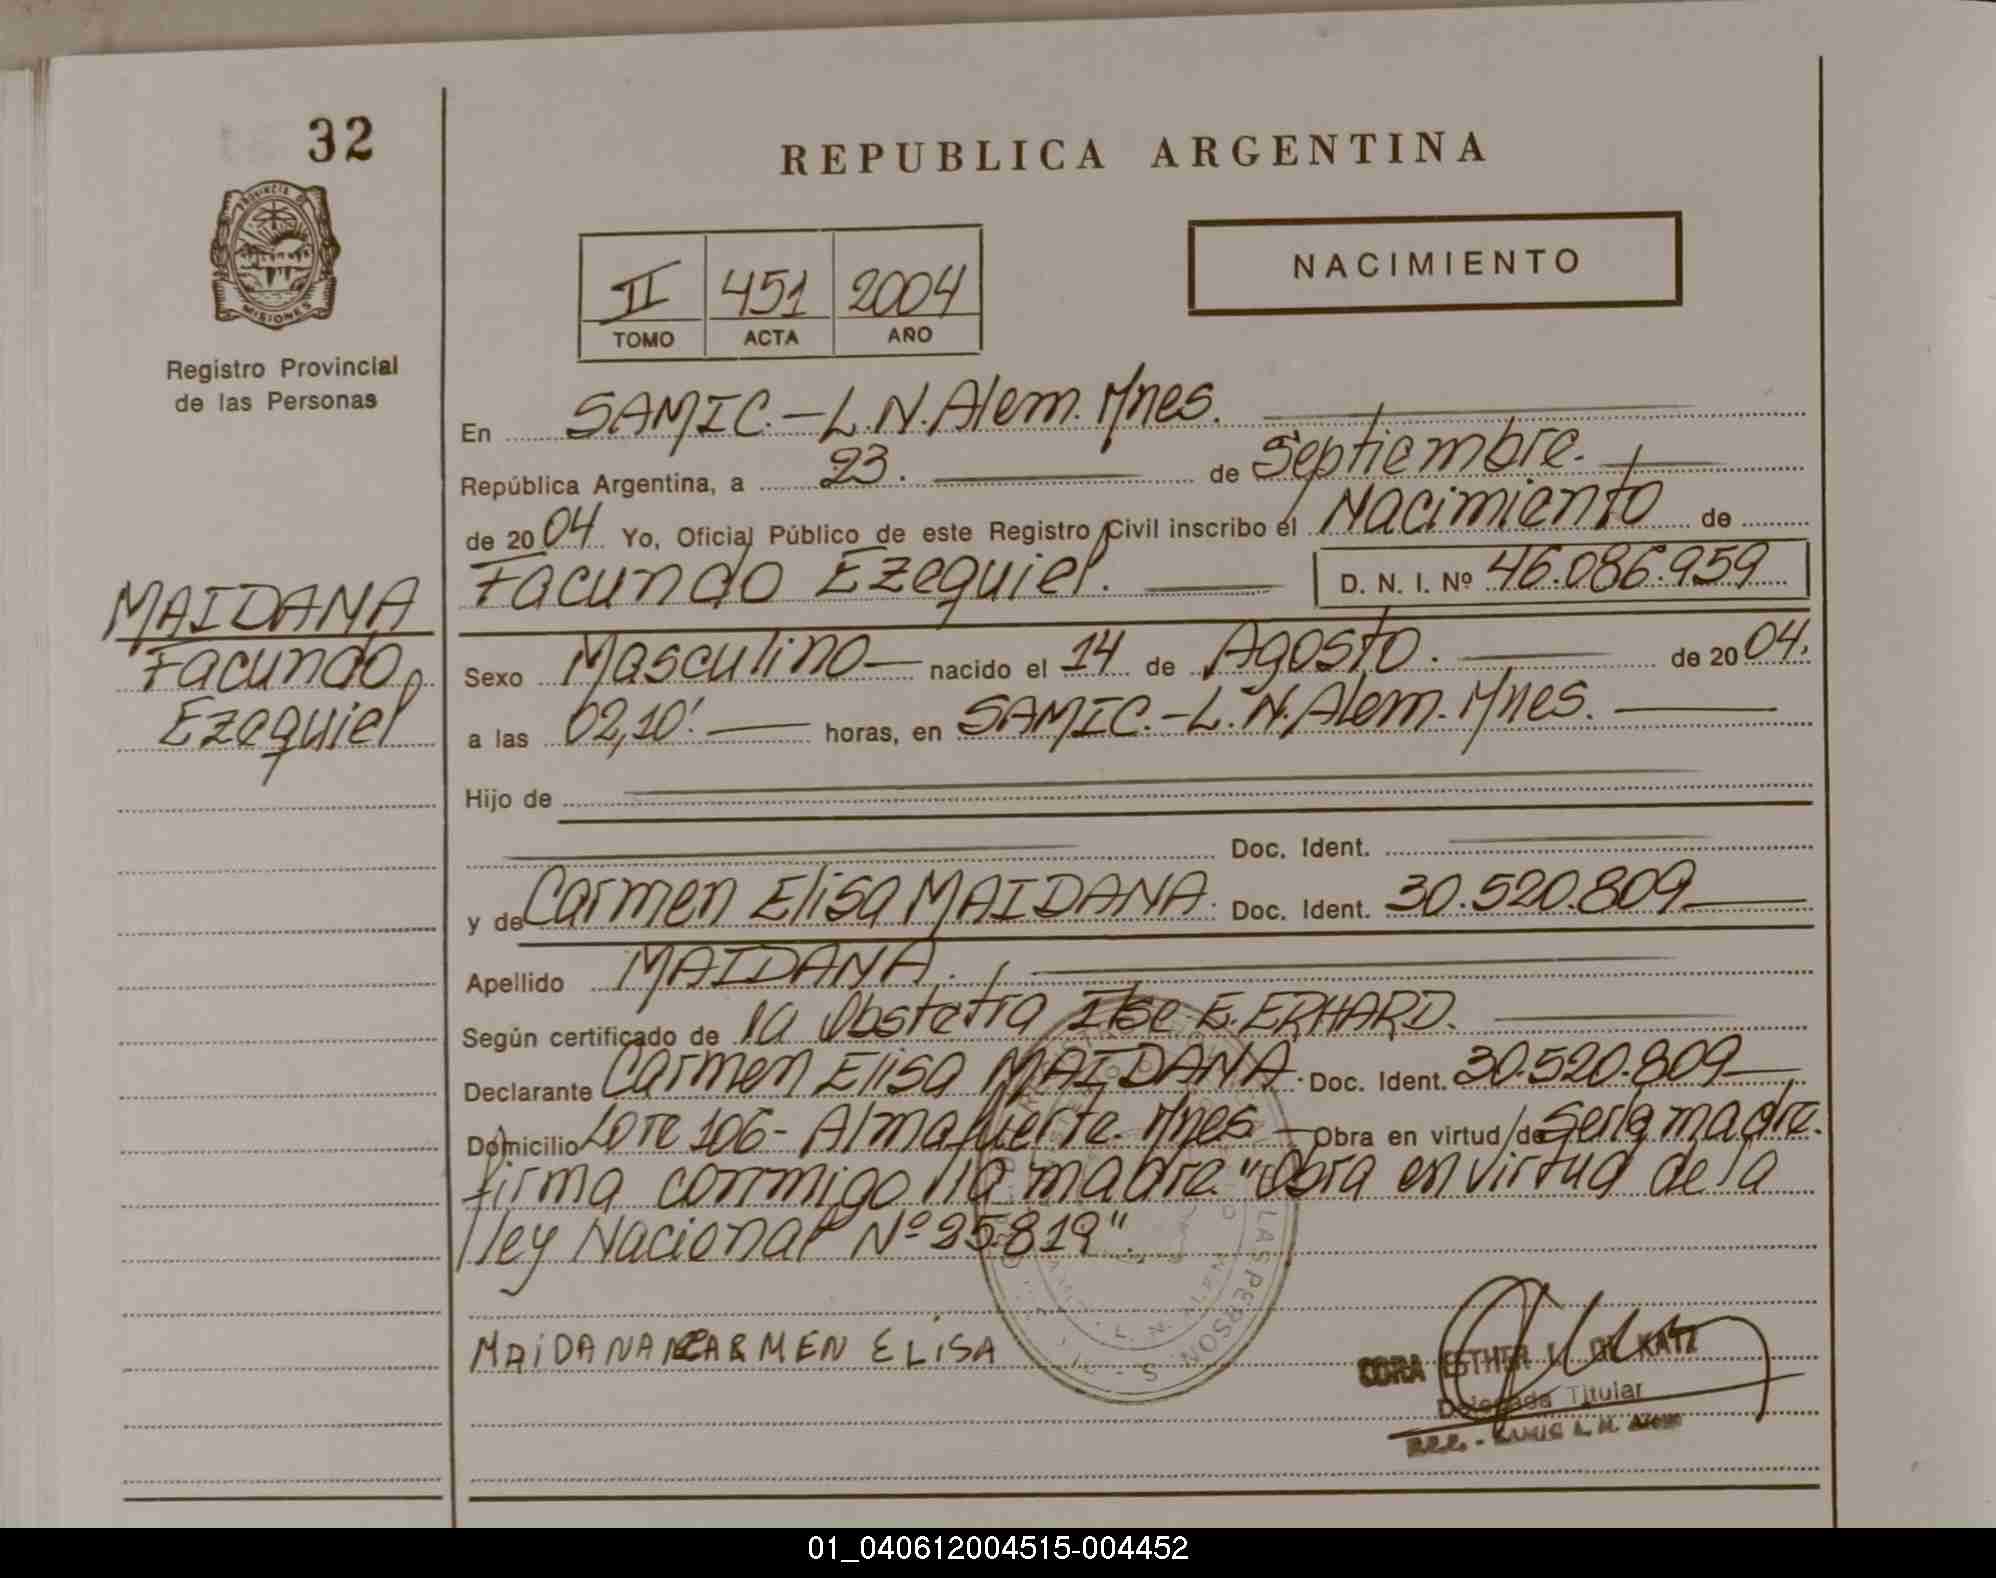 32
PROVINCIA DE
MISIONES
Registro Provincial
de las Personas
MAIDANA
Facundo
Ezequiel
REPUBLICA ARGENTINA
II 451 2004
TOMO ACTA AÑO
NACIMIENTO
En SAMIC.-L.N.Alem. Mnes.
República Argentina, a 23. de Septiembre.
de 2004 Yo, Oficial Público de este Registro Civil inscribo el Nacimiento de
Facundo Ezequiel. D. N. I. Nº 46.086.959
Sexo Masculino nacido el 14 de Agosto. de 2004.
a las 02,10'. horas, en SAMIC.-L.N.Alem. Mnes.
Hijo de
Doc. Ident.
y de Carmen Elisa MAIDANA. Doc. Ident. 30.520.809
Apellido MAIDANA.
Según certificado de la Obstetra Ilse E. ERHARD.
Declarante Carmen Elisa MAIDANA. Doc. Ident. 30.520.809
Domicilio Lote 106- Almafuerte. Mnes Obra en virtud de Ser la madre.
firma conmigo la madre "Obra en virtud de la
ley Nacional Nº 25.819".
MAIDANA CARMEN ELISA
CORA ESTHER L. DE KATZ
Delegada Titular
L. N. Alem
LAS PERSON S
01_040612004515-004452